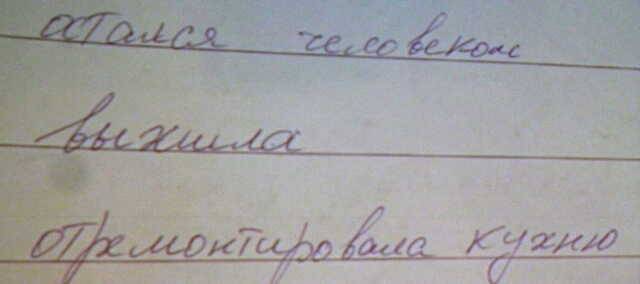 остался человеком
выжила
отремонтировала кухню